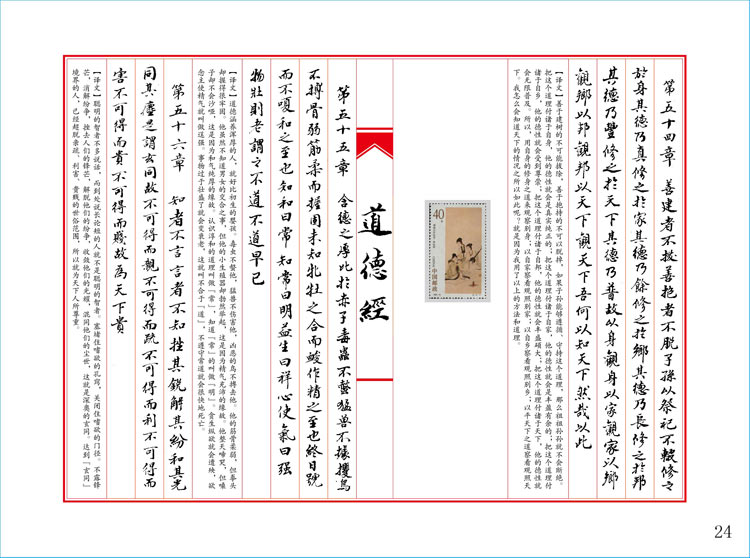 第五十四章 善建者不拔善抱者不脫子孫以祭祀不輟修之
於身其德乃真修之於家其德乃餘修之於鄉其德乃長修之於邦
其德乃豐修之於天下其德乃普故以身觀身以家觀家以鄉
觀鄉以邦觀邦以天下觀天下吾何以知天下然哉以此
【译文】善于建树的不可能拔除，善于抱持的不可以脱掉，如果子孙能够遵循、守持这个道理，那么祖祖孙孙就不会断绝。
把这个道理付诸于自身，他的德性就会是真实纯正的；把这个道理付诸于自家，他的德性就会是丰盈有余的；把这个道理付
诸于自乡，他的德性就会受到尊崇；把这个道理付诸于自邦，他的德性就会丰盛硕大；把这个道理付诸于天下，他的德性就
会无限普及。所以，用自身的修身之道来观察别身；以自家察看观照别家；以自乡察看观照别乡；以平天下之道察看观照天
下。我怎么会知道天下的情况之所以如此呢？就是因为我用了以上的方法和道理。
40
中国邮政
道德經
第五十五章 含德之厚比於赤子毒蟲不螫猛獸不據攫鳥
不搏骨弱筋柔而握固未知牝牡之合而朘作精之至也終日號
而不嗄和之至也知和曰常知常曰明益生曰祥心使氣曰强
物壯則老謂之不道不道早已
【译文】道德涵养浑厚的人，就好比初生的婴孩。毒虫不螫他，猛兽不伤害他，凶恶的鸟不搏击他。他的筋骨柔弱，但拳头
却握得很牢固。他虽然不知道男女的交合之事，但他的小生殖器却勃然举起，这是因为精气充沛的缘故。他整天啼哭，但嗓
子却不会沙哑，这是因为和气纯厚的缘故。认识淳和的道理叫做「常」，知道「常」的叫做「明」。贪生纵欲就会遭殃，欲
念主使精气就叫做逞强。事物过于壮盛了就会变衰老，这就叫不合于「道」，不遵守常道就会很快地死亡。
第五十六章 知者不言言者不知挫其銳解其紛和其光
同其塵是謂玄同故不可得而親不可得而疏不可得而利不可得而
害不可得而貴不可得而賤故為天下貴
【译文】聪明的智者不多说话，而到处说长论短的人就不是聪明的智者。塞堵住嗜欲的孔窍，关闭住嗜欲的门径。不露锋
芒，消解纷争，挫去人们的锋芒，解脱他们的纷争，收敛他们的光耀，混同他们的尘世，这就是深奥的玄同。达到「玄同」
境界的人，已经超脱亲疏、利害、贵贱的世俗范围，所以就为天下人所尊重。
24